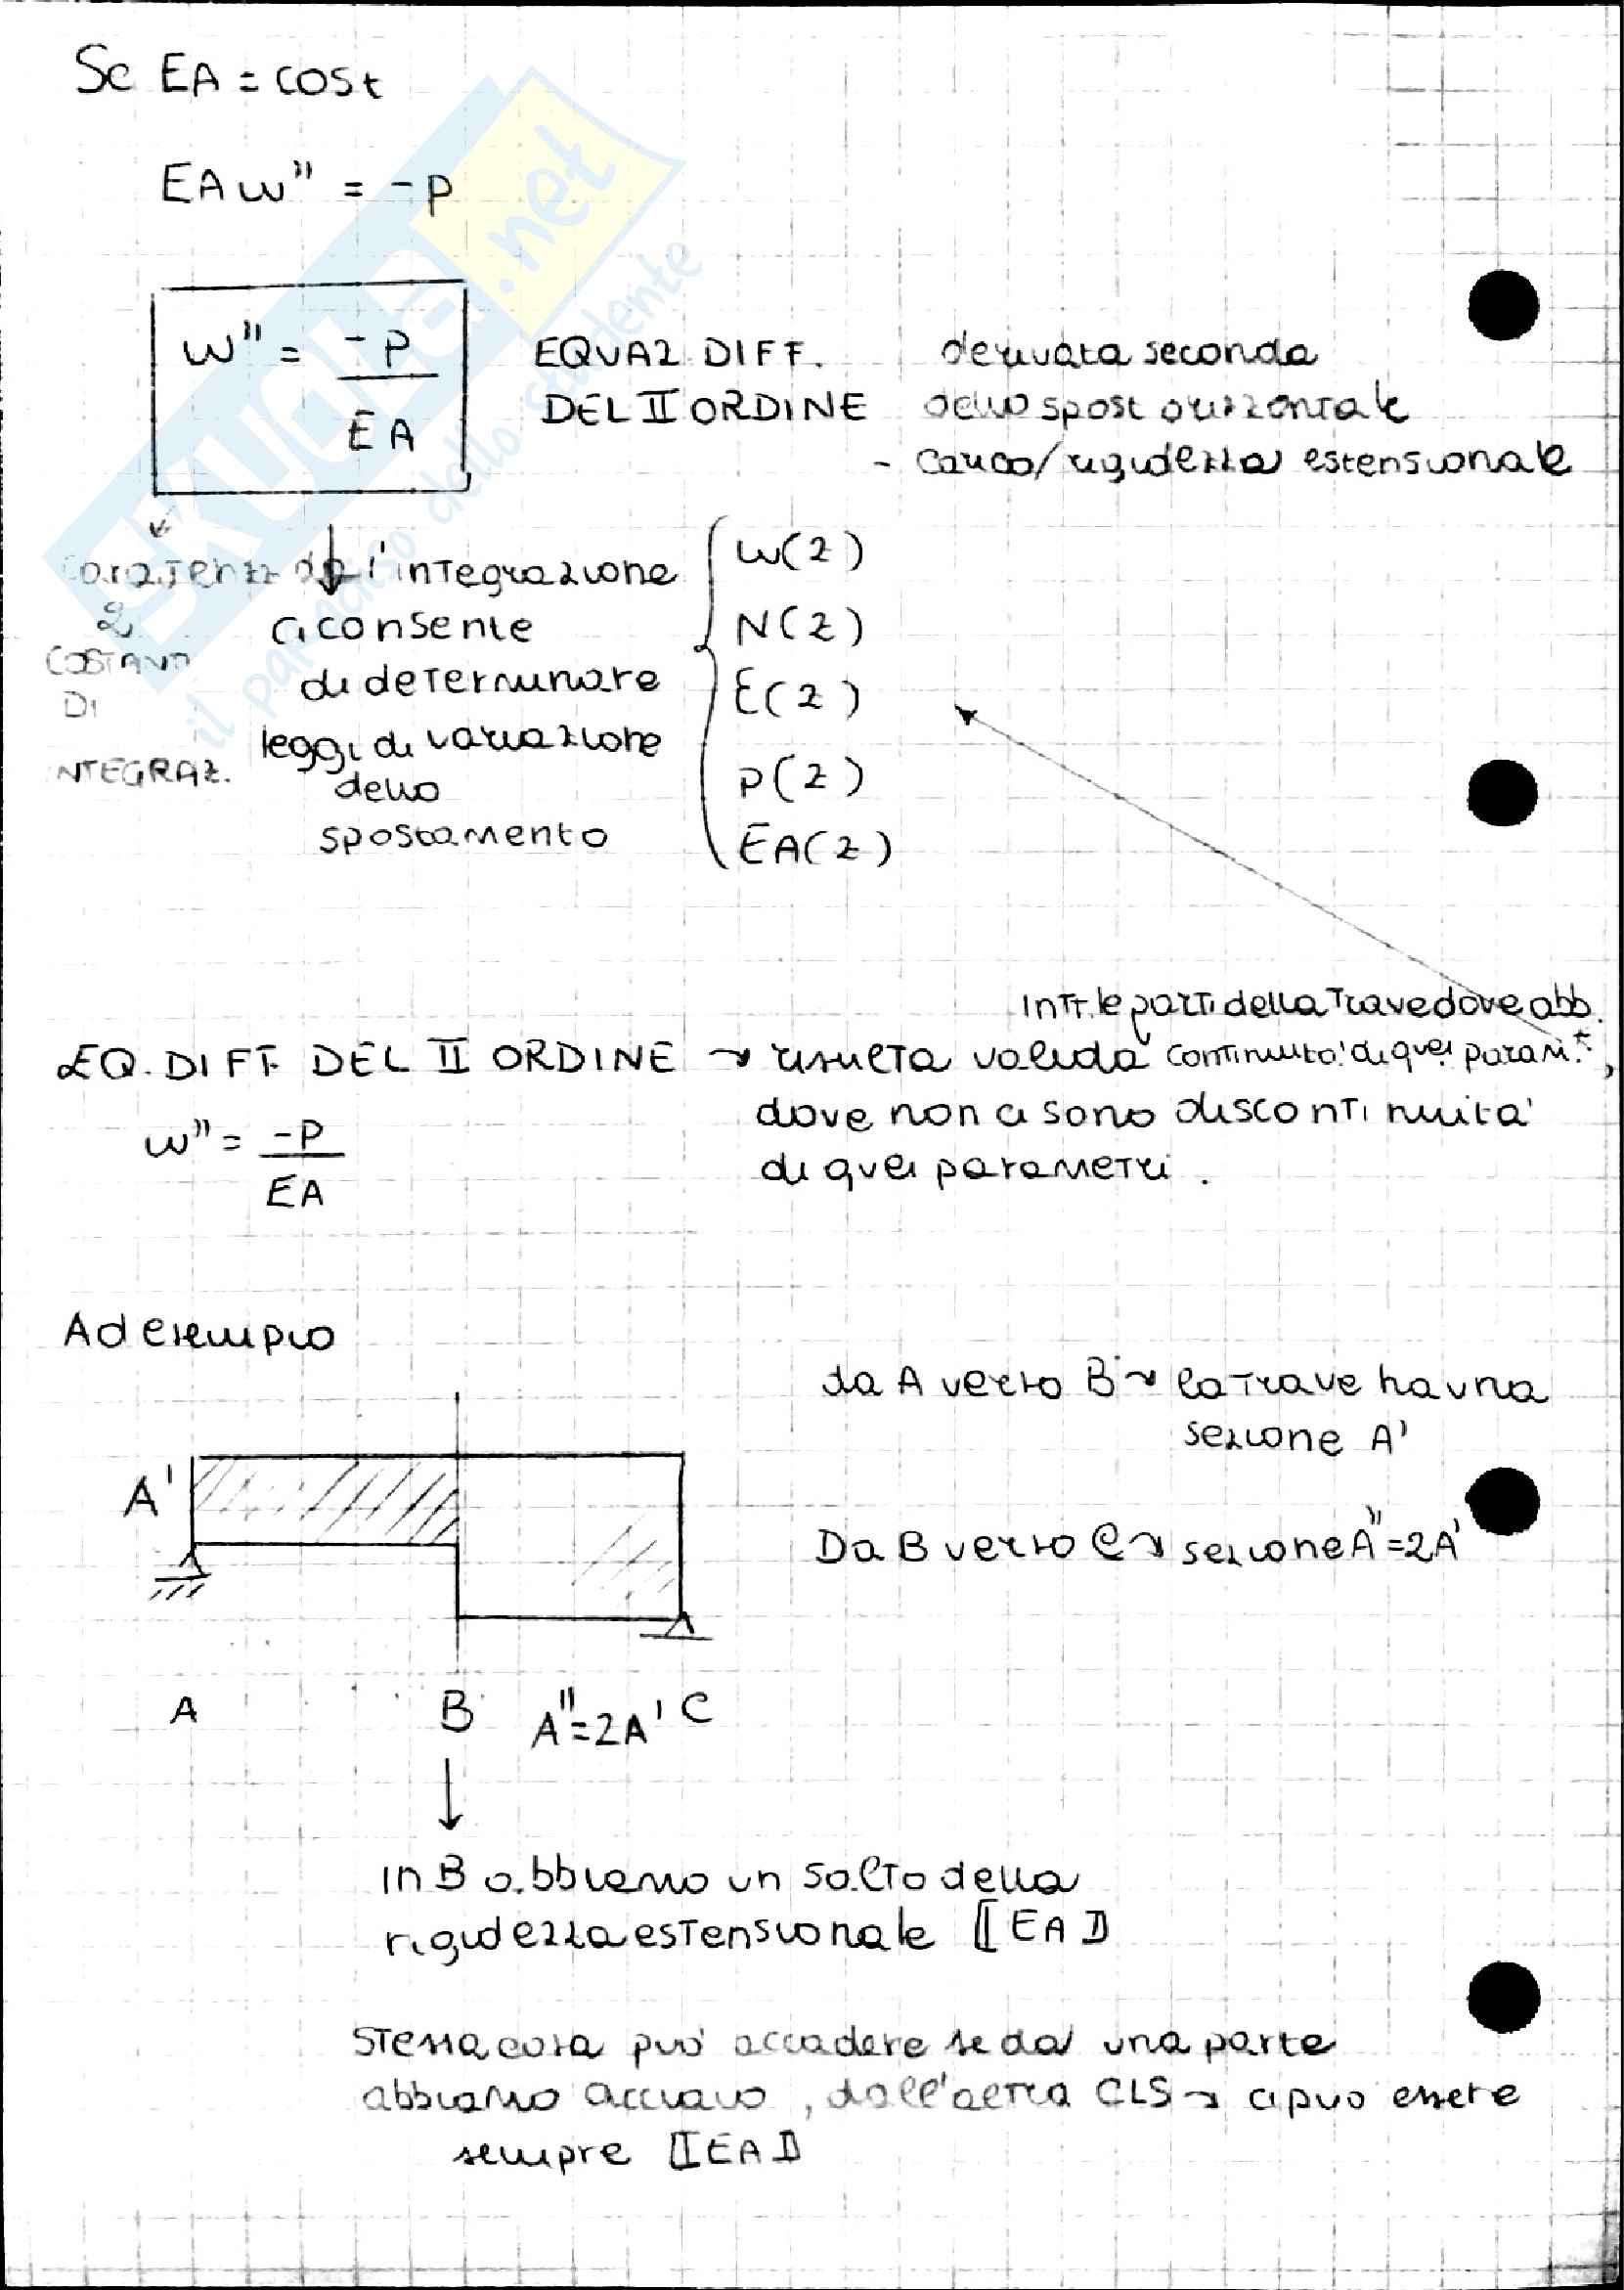 Se EA = cost
EA w'' = -p
w'' = -p / EA
EQUAZ. DIFF. DEL II ORDINE
derivata seconda
dello spost orizzontale
- carico/rigidezza estensionale
caratterizz. dal l'integrazione
2
COSTANTI
DI
INTEGRAZ.
ci consente
di determinare
leggi di variazione
dello
spostamento
w(z)
N(z)
ε(z)
p(z)
EA(z)
EQ. DIFF. DEL II ORDINE → risulta valida
w'' = -p / EA
in tt. le parti della trave dove abb.
continuità di quei param.*,
dove non ci sono discontinuità
di quei parametri.
Ad esempio
da A verso B → la trave ha una
sezione A'
Da B verso C → sezione A''=2A'
A'
A B A''=2A' C
in B abbiamo un salto della
rigidezza estensionale [[EA]]
Stessa cosa può accadere se da una parte
abbiamo acciaio, dall'altra CLS → ci può essere
sempre [[EA]]
SKUOLA.net
il paradiso dello studente